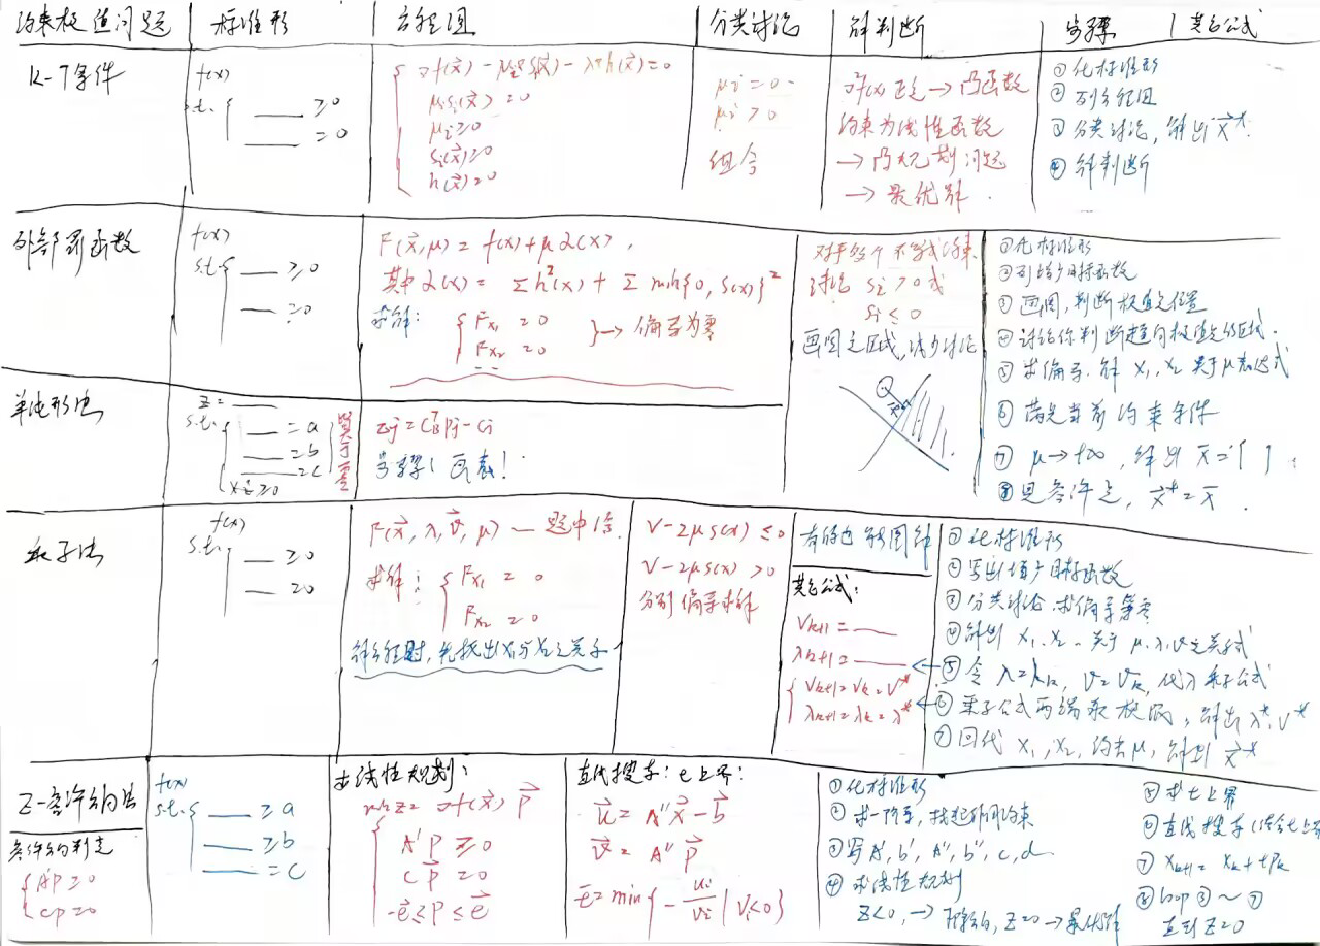 约束极值问题 标准形 方程组 分类讨论 解判断 步骤 其它公式
K-T条件
f(x)
s.t. ≥0
=0
∇f(x) - μᵢ∇S(x) - λ∇h(x) = 0
μᵢsᵢ(x) = 0
μᵢ≥0
sᵢ(x)≥0
h(x)=0
μᵢ=0
μᵢ>0
组合
∇²f(x) 正定→凸函数
约束为线性函数
→凸规划问题
→最优解.
① 化标准形
② 列方程组
③ 分类讨论, 解出x*
④ 解判断
外部罚函数
f(x)
s.t. ≥0
=0
F(x,μ) = f(x)+μα(x),
其中α(x) = Σh²(x) + Σ min{0, s(x)}²
求解: Fx₁ = 0
Fx₂ = 0 → 偏导为零
对每个不等式约束
讨论 sᵢ>0 或
sᵢ≤0
画图定区域, 减少讨论
①化标准形
②列增广目标函数
③ 画图, 判断极值点位置
④讨论你判断趋向极值点的区域.
⑤ 求偏导, 解 x₁, x₂ 关于μ表达式
⑥ 满足当前约束条件
⑦ μ→+∞, 解出 x̄={ }
⑧是容许点, x*=x̄
单纯形法
z=
s.t. =a
=b
=c
xᵢ≥0
贤于零
zj = CBᵀPj - Cj
步骤! 画表!
乘子法
f(x)
s.t. ≥0
=0
F(x, λ, v, μ) — 题中给.
求解: Fx₁ = 0
Fx₂ = 0
解方程时, 先找出x₁与x₂之关系
v-2μs(x) ≤0
v-2μs(x) >0
分别偏导求解
有的也能图解
其它公式:
Vk+1 =
λk+1 =
Vk+1=Vk=V*
λk+1=λk=λ*
① 化标准形
②写出增广目标函数
③分类讨论 求偏导等零
④解出 x₁、x₂ 关于 μ、λ、v之关系式
⑤ 令 λ=λk, v=vk, 代入乘子公式
⑥ 乘子公式两端取极限, 解出 λ*, v*
⑦ 回代 x₁, x₂, 约去μ, 解到 x*
Z-容许方向法
容许方向判定
A'p≥0
cp=0
f(x)
s.t. ≥a
≥b
=c
求线性规划:
min z = ∇f(x) p
A'p ≥0
cp =0
-e≤p≤e
直线搜索: t上界:
u = A''x-b
v = A''p
t̄=min{-uᵢ/vᵢ | vᵢ<0}
① 化标准形
② 求一阶导, 找起作用约束
③ 写A', b', A'', b'', c, d
④ 求线性规划
z<0, → 下降方向, z=0→最优解
⑤ 求t上界
⑥ 直线搜索(结合t上界
⑦ xk+1 = xk+tPk
⑧ loop ②～⑦
直到z=0